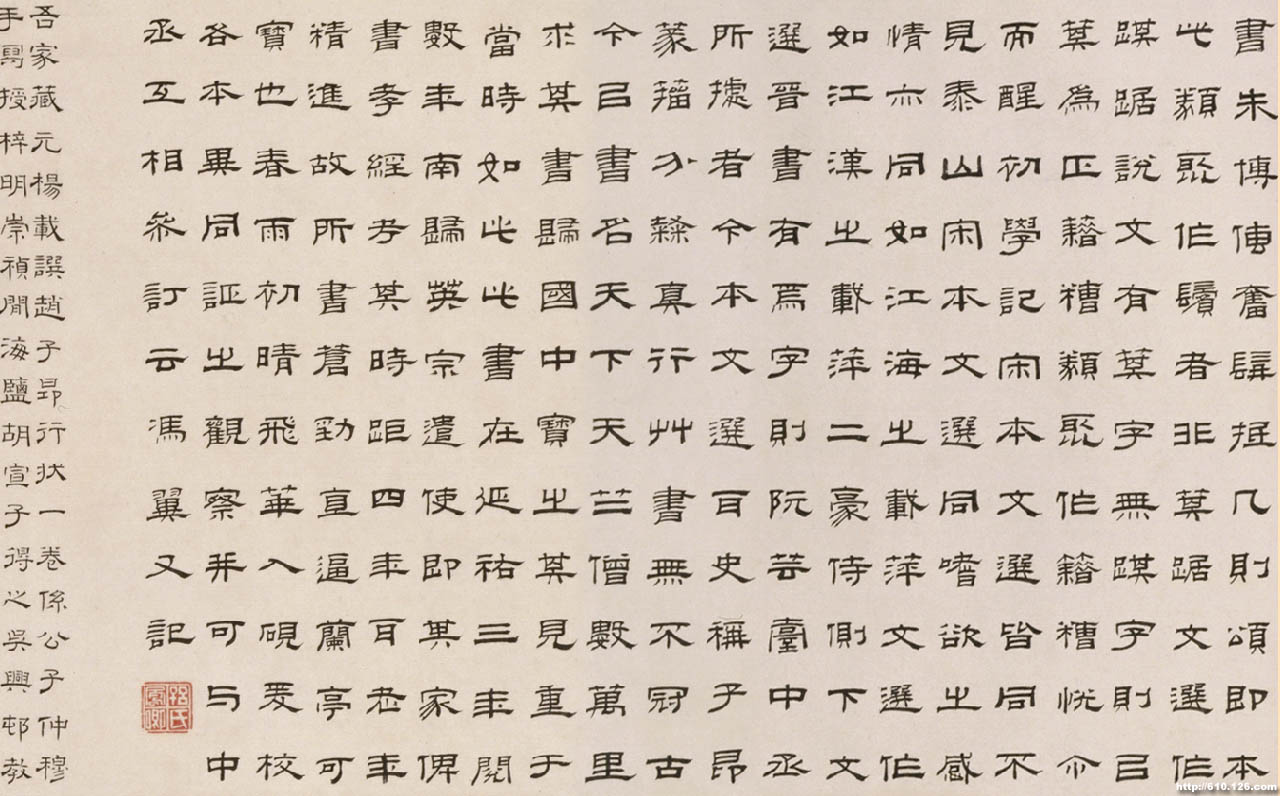 書朱博傳奮髯抵几則頌即本
此類聚作鬚者非萁踞文選作
踑踞說文有萁字無踑字則㠯
萁為正藉糟類聚作籍糟怳亦
而醒初學記宋本文選皆同不
見泰山宋本文選同嗜欲之感
情亦同如江海之載萍文選作
如江漢之載萍二豪侍側下文
選晉書有焉字則阮芸臺中丞
所據者今本文選耳史稱子昂
篆籀分隸真行艸書無不冠古
今㠯書名天下天竺僧數萬里
求其書歸國中寶之其見重于
當時如此此書在延祐三年閱
數年南歸英宗遣使即其家俾
書孝經考其時距四年耳老年
精進故所書蒼勁直逼蘭亭可
寶也春雨初晴飛華入硯爰校
各本異同証之觀察并可与中
丞互相參訂云馮翼又記
吾家藏元楊載譔趙子昂行狀一卷係公子仲穆
手寫授梓明崇禎間海鹽胡宣子得之吳興邨教
http://610.126.com